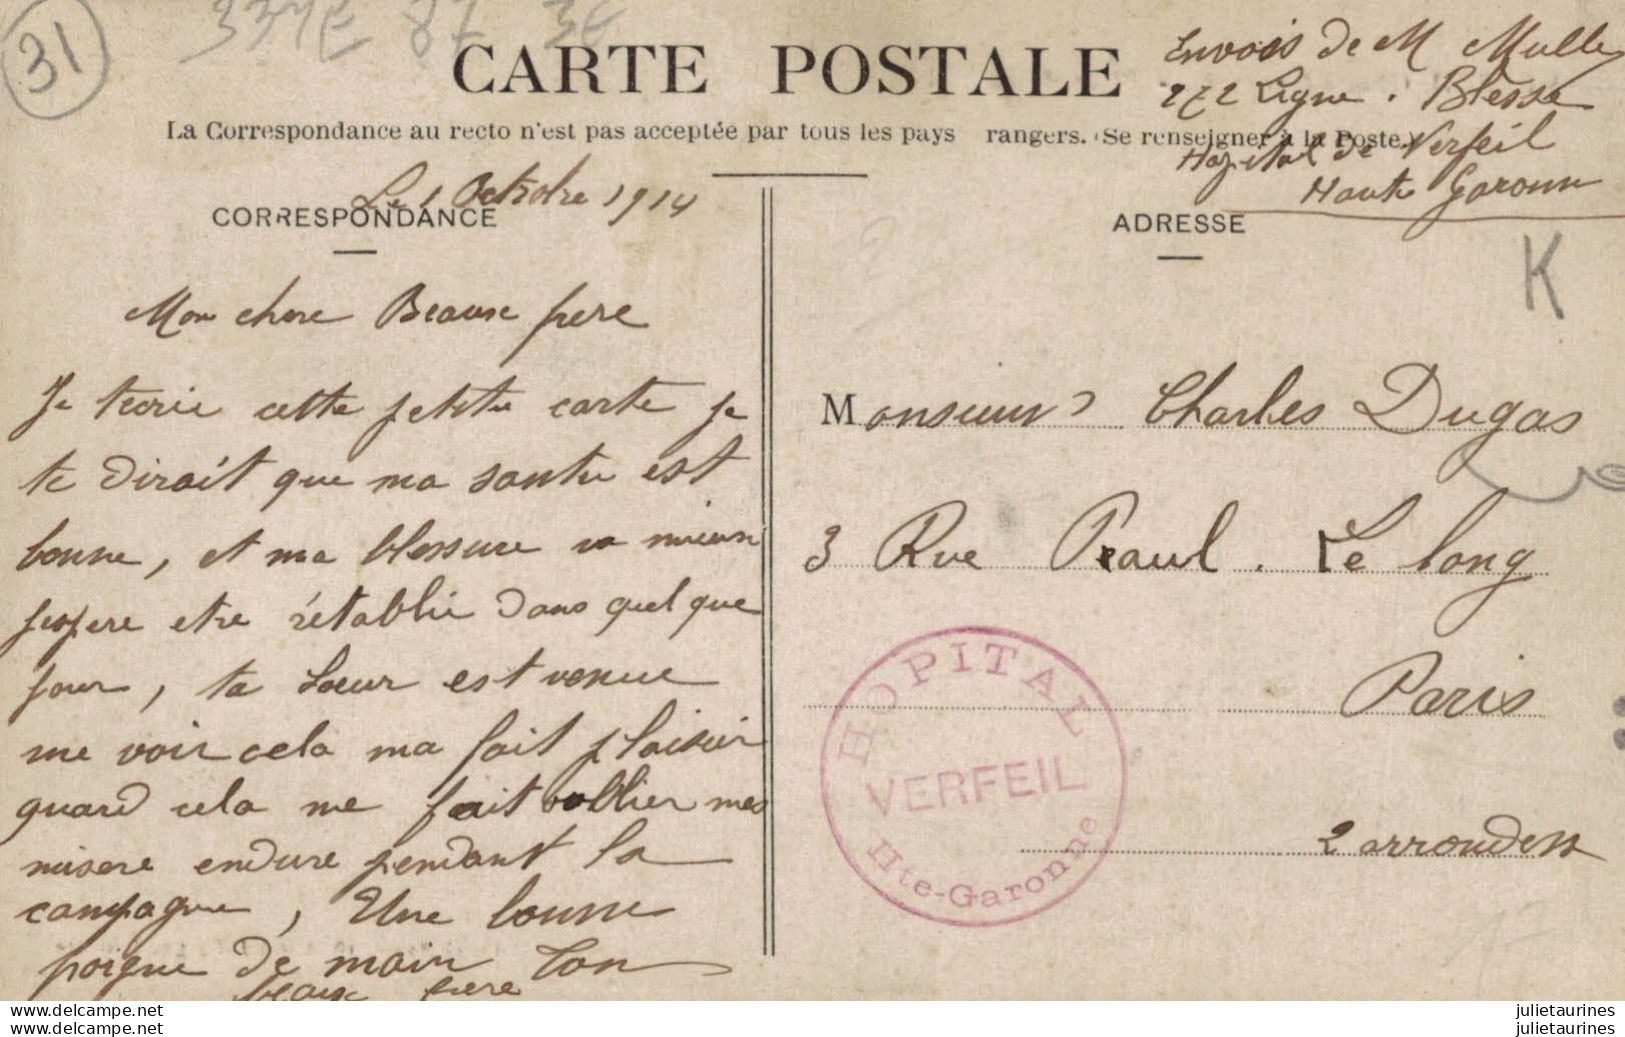 31
CARTE POSTALE
La Correspondance au recto n'est pas acceptée par tous les pays rangers. (Se renseigner à la Poste.)
Envois de M Muller
272 Ligne. Blesse
Hopital de Verfeil
Haute Garonne
CORRESPONDANCE
Le 1 Octobre 1914
Mon chere Beause frere
Je tecrie cette petite carte je
te dirait que ma sante est
bonne, et ma blessure va mieux
jespere etre rétablie dans quelque
jour, ta soeur est venue
me voir cela ma fait plaisir
quand cela me fait oublier mes
misere endure pendant la
campagne, Une bonne
poigne de main Ton
beaux frere
ADRESSE
K
Monsieur Charles Dugas
3 Rue Paul. Le long
Paris
2 arrondess
HOPITAL
VERFEIL
Hte-Garonne
www.delcampe.net
www.delcampe.net
julietaurines
julietaurines